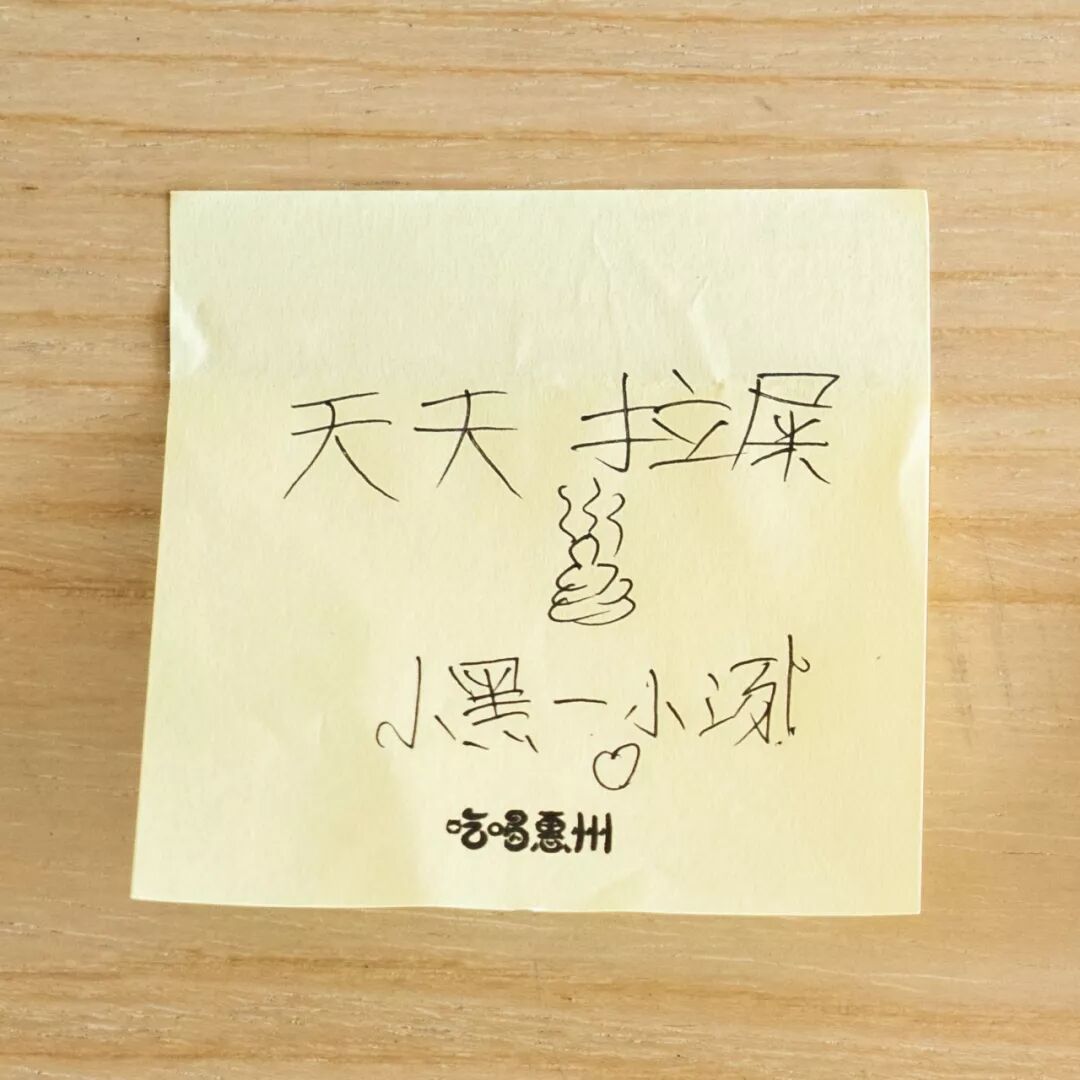 天天 拉屎
小黑一小
吃喝惠州